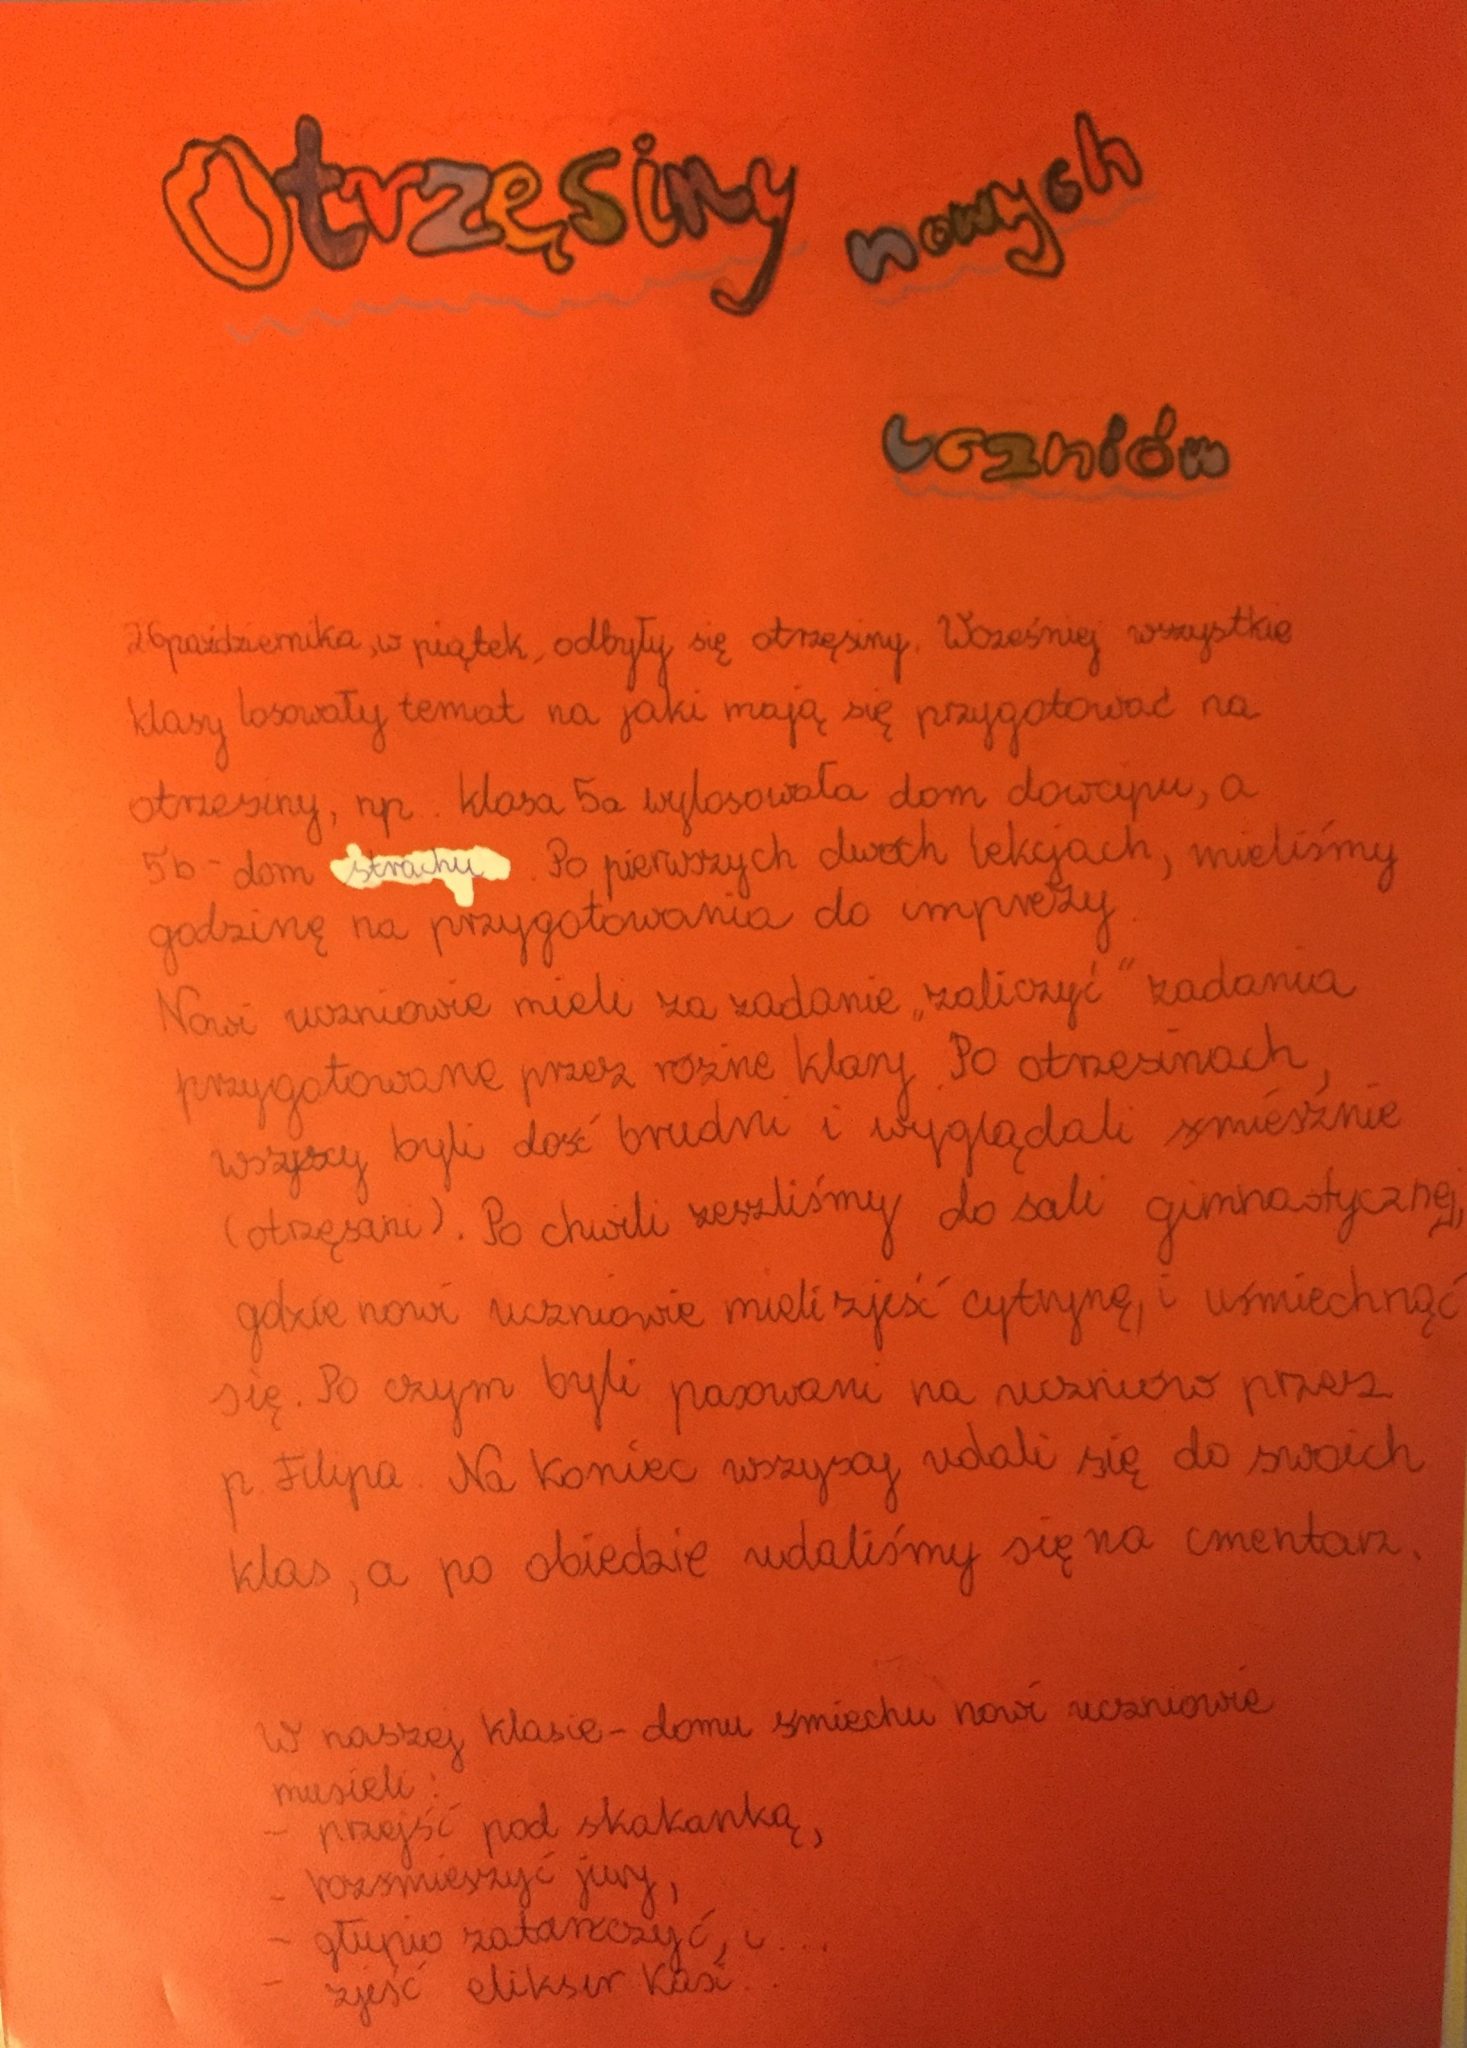 Otrzęsiny nowych
uczniów
26 października, w piątek, odbyły się otrzęsiny. Wcześniej wszystkie
klasy losowały temat na jaki mają się przygotować na
otrzęsiny, np. klasa 5a wylosowała dom dowcipu, a
5b - dom strachu. Po pierwszych dwóch lekcjach, mieliśmy
godzinę na przygotowania do imprezy.
Nowi uczniowie mieli za zadanie „zaliczyć” zadania
przygotowane przez różne klasy. Po otrzęsinach,
wszyscy byli dość brudni i wyglądali śmiesznie
(otrzęsani). Po chwili zeszliśmy do sali gimnastycznej,
gdzie nowi uczniowie mieli zjeść cytrynę, i uśmiechnąć
się. Po czym byli pasowani na uczniów przez
p. Filipa. Na koniec wszyscy udali się do swoich
klas, a po obiedzie udaliśmy się na cmentarz.
W naszej klasie - domu śmiechu nowi uczniowie
musieli:
- przejść pod skakanką,
- rozśmieszyć jury,
- głupio zatańczyć, i...
- zjeść eliksir Kasi...